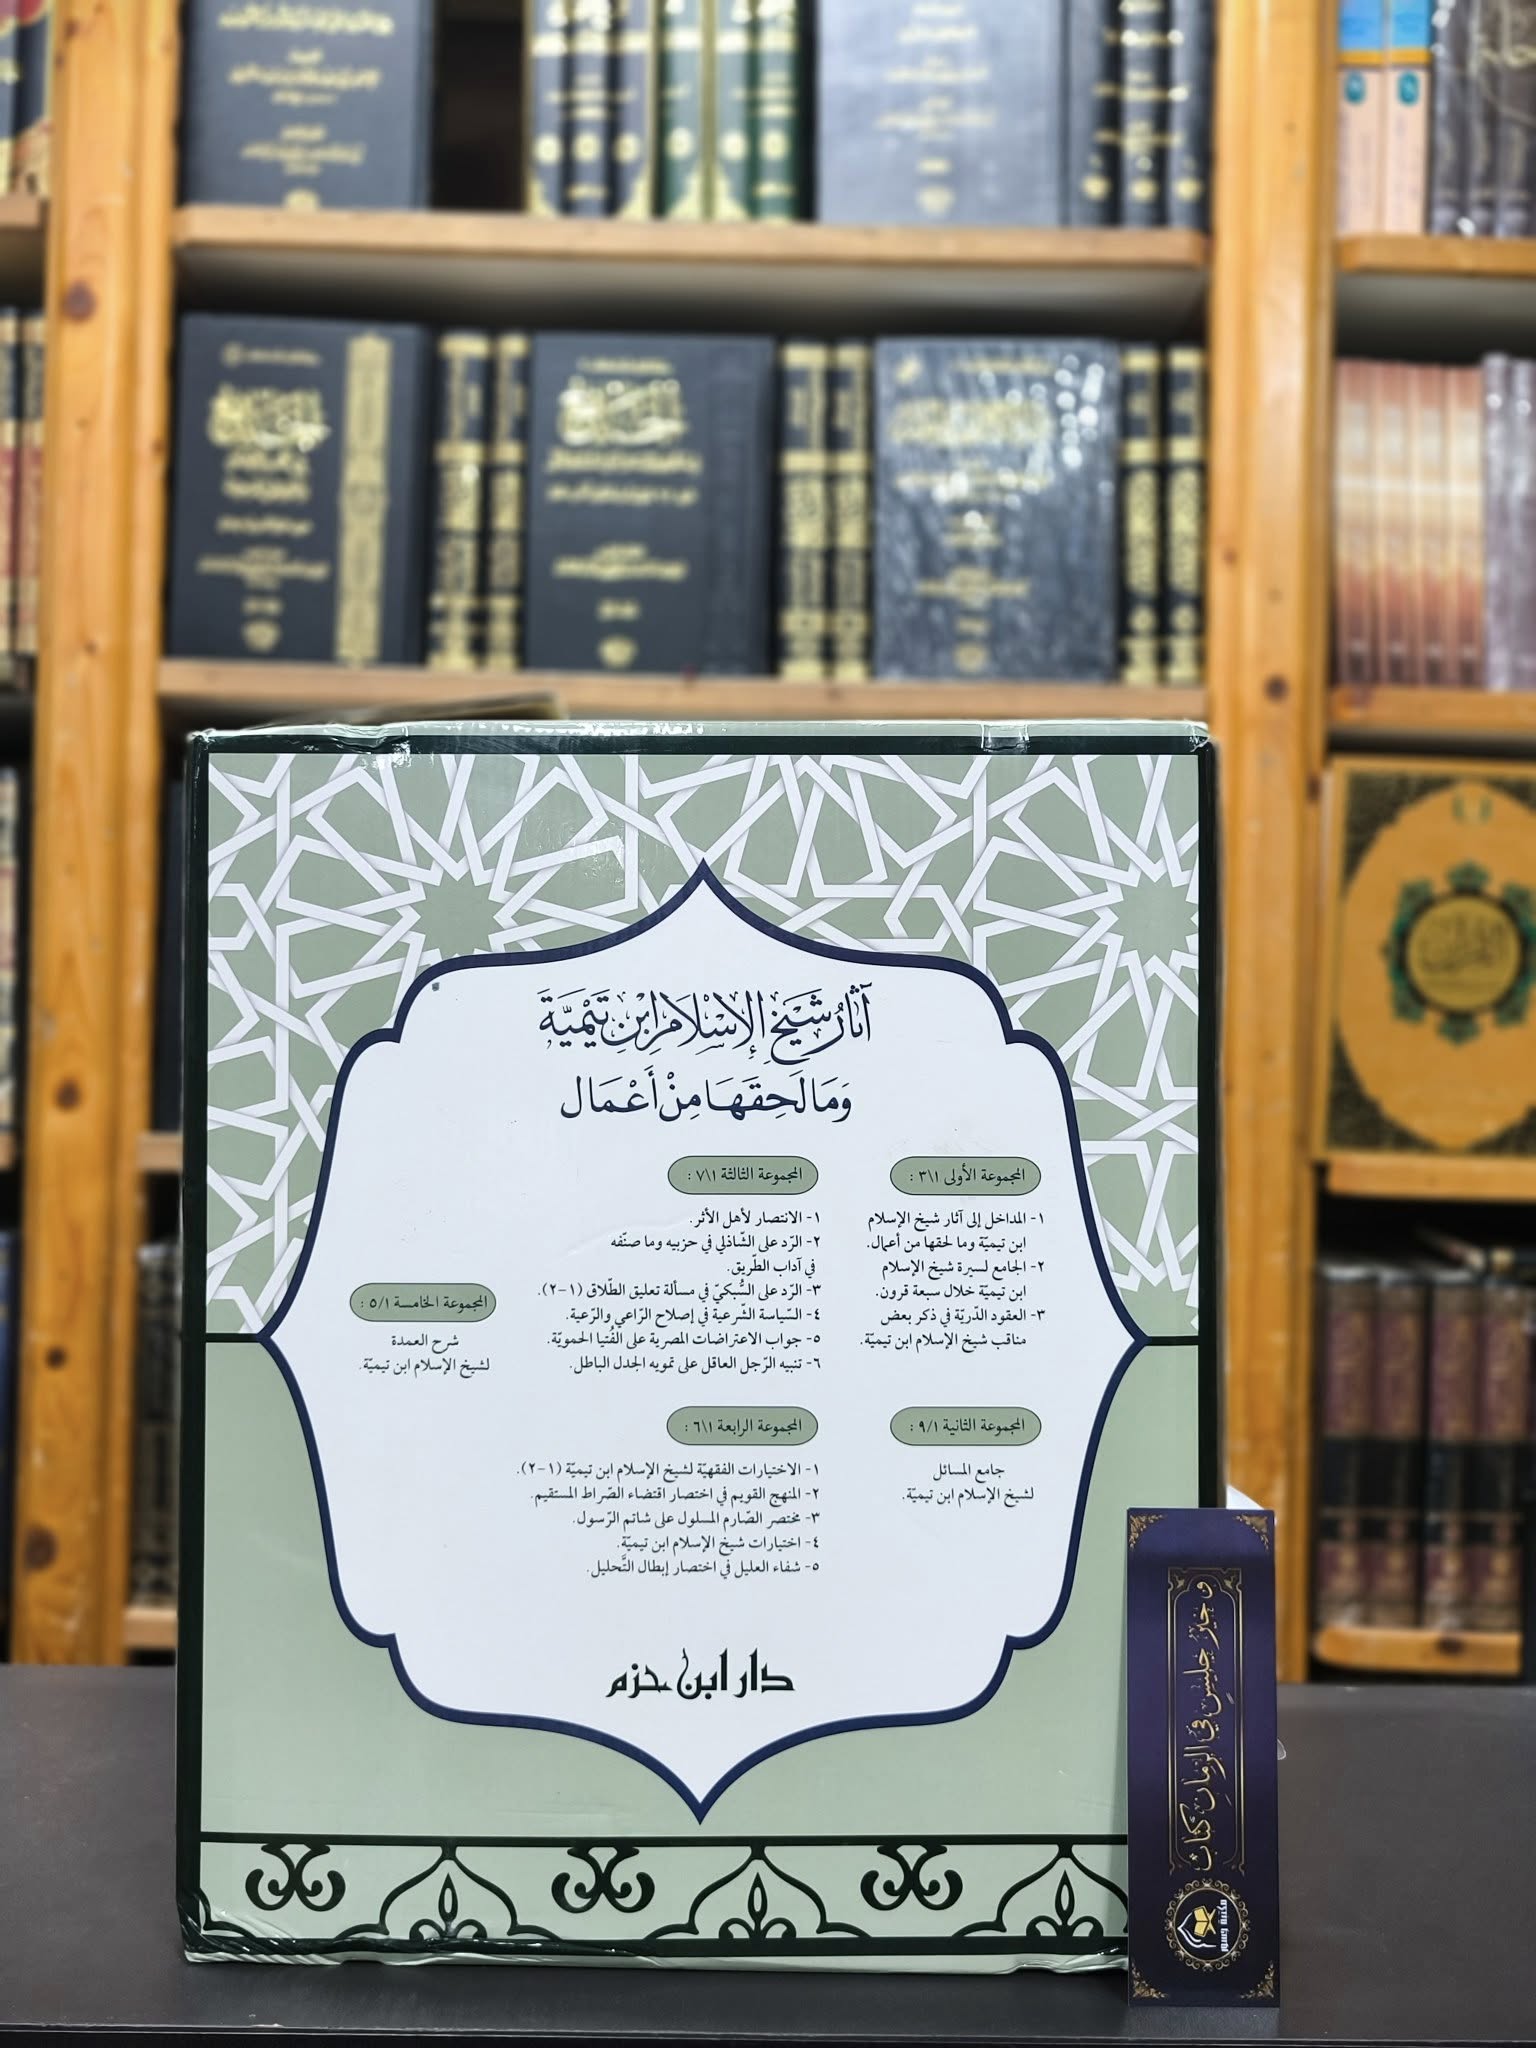 آثَارُ شَيْخِ الإِسْلَامِ ابْنِ تَيْمِيَّةَ
وَمَا لَحِقَهَا مِنْ أَعْمَال
المجموعة الأولى ١\٣ :
١- المداخل إلى آثار شيخ الإسلام
ابن تيميّة وما لحقها من أعمال.
٢- الجامع لسيرة شيخ الإسلام
ابن تيميّة خلال سبعة قرون.
٣- العقود الدّريّة في ذكر بعض
مناقب شيخ الإسلام ابن تيميّة.
المجموعة الثانية ٩/١ :
جامع المسائل
لشيخ الإسلام ابن تيميّة.
المجموعة الثالثة ١\٧ :
١- الانتصار لأهل الأثر.
٢- الرّد على الشّاذلي في حزبيه وما صنّفه
في آداب الطّريق.
٣- الرّد على السُّبكيّ في مسألة تعليق الطّلاق (١-٢).
٤- السّياسة الشّرعية في إصلاح الرّاعي والرّعية.
٥- جواب الاعتراضات المصرية على الفُتيا الحمويّة.
٦- تنبيه الرّجل العاقل على تمويه الجدل الباطل.
المجموعة الرابعة ١\٦ :
١- الاختيارات الفقهيّة لشيخ الإسلام ابن تيميّة (١-٢).
٢- المنهج القويم في اختصار اقتضاء الصّراط المستقيم.
٣- مختصر الصّارم المسلول على شاتم الرّسول.
٤- اختيارات شيخ الإسلام ابن تيميّة.
٥- شفاء العليل في اختصار إبطال التَّحليل.
المجموعة الخامسة ٥/١ :
شرح العمدة
لشيخ الإسلام ابن تيميّة.
دار ابن حزم
وخير جليس في الزمان كتاب